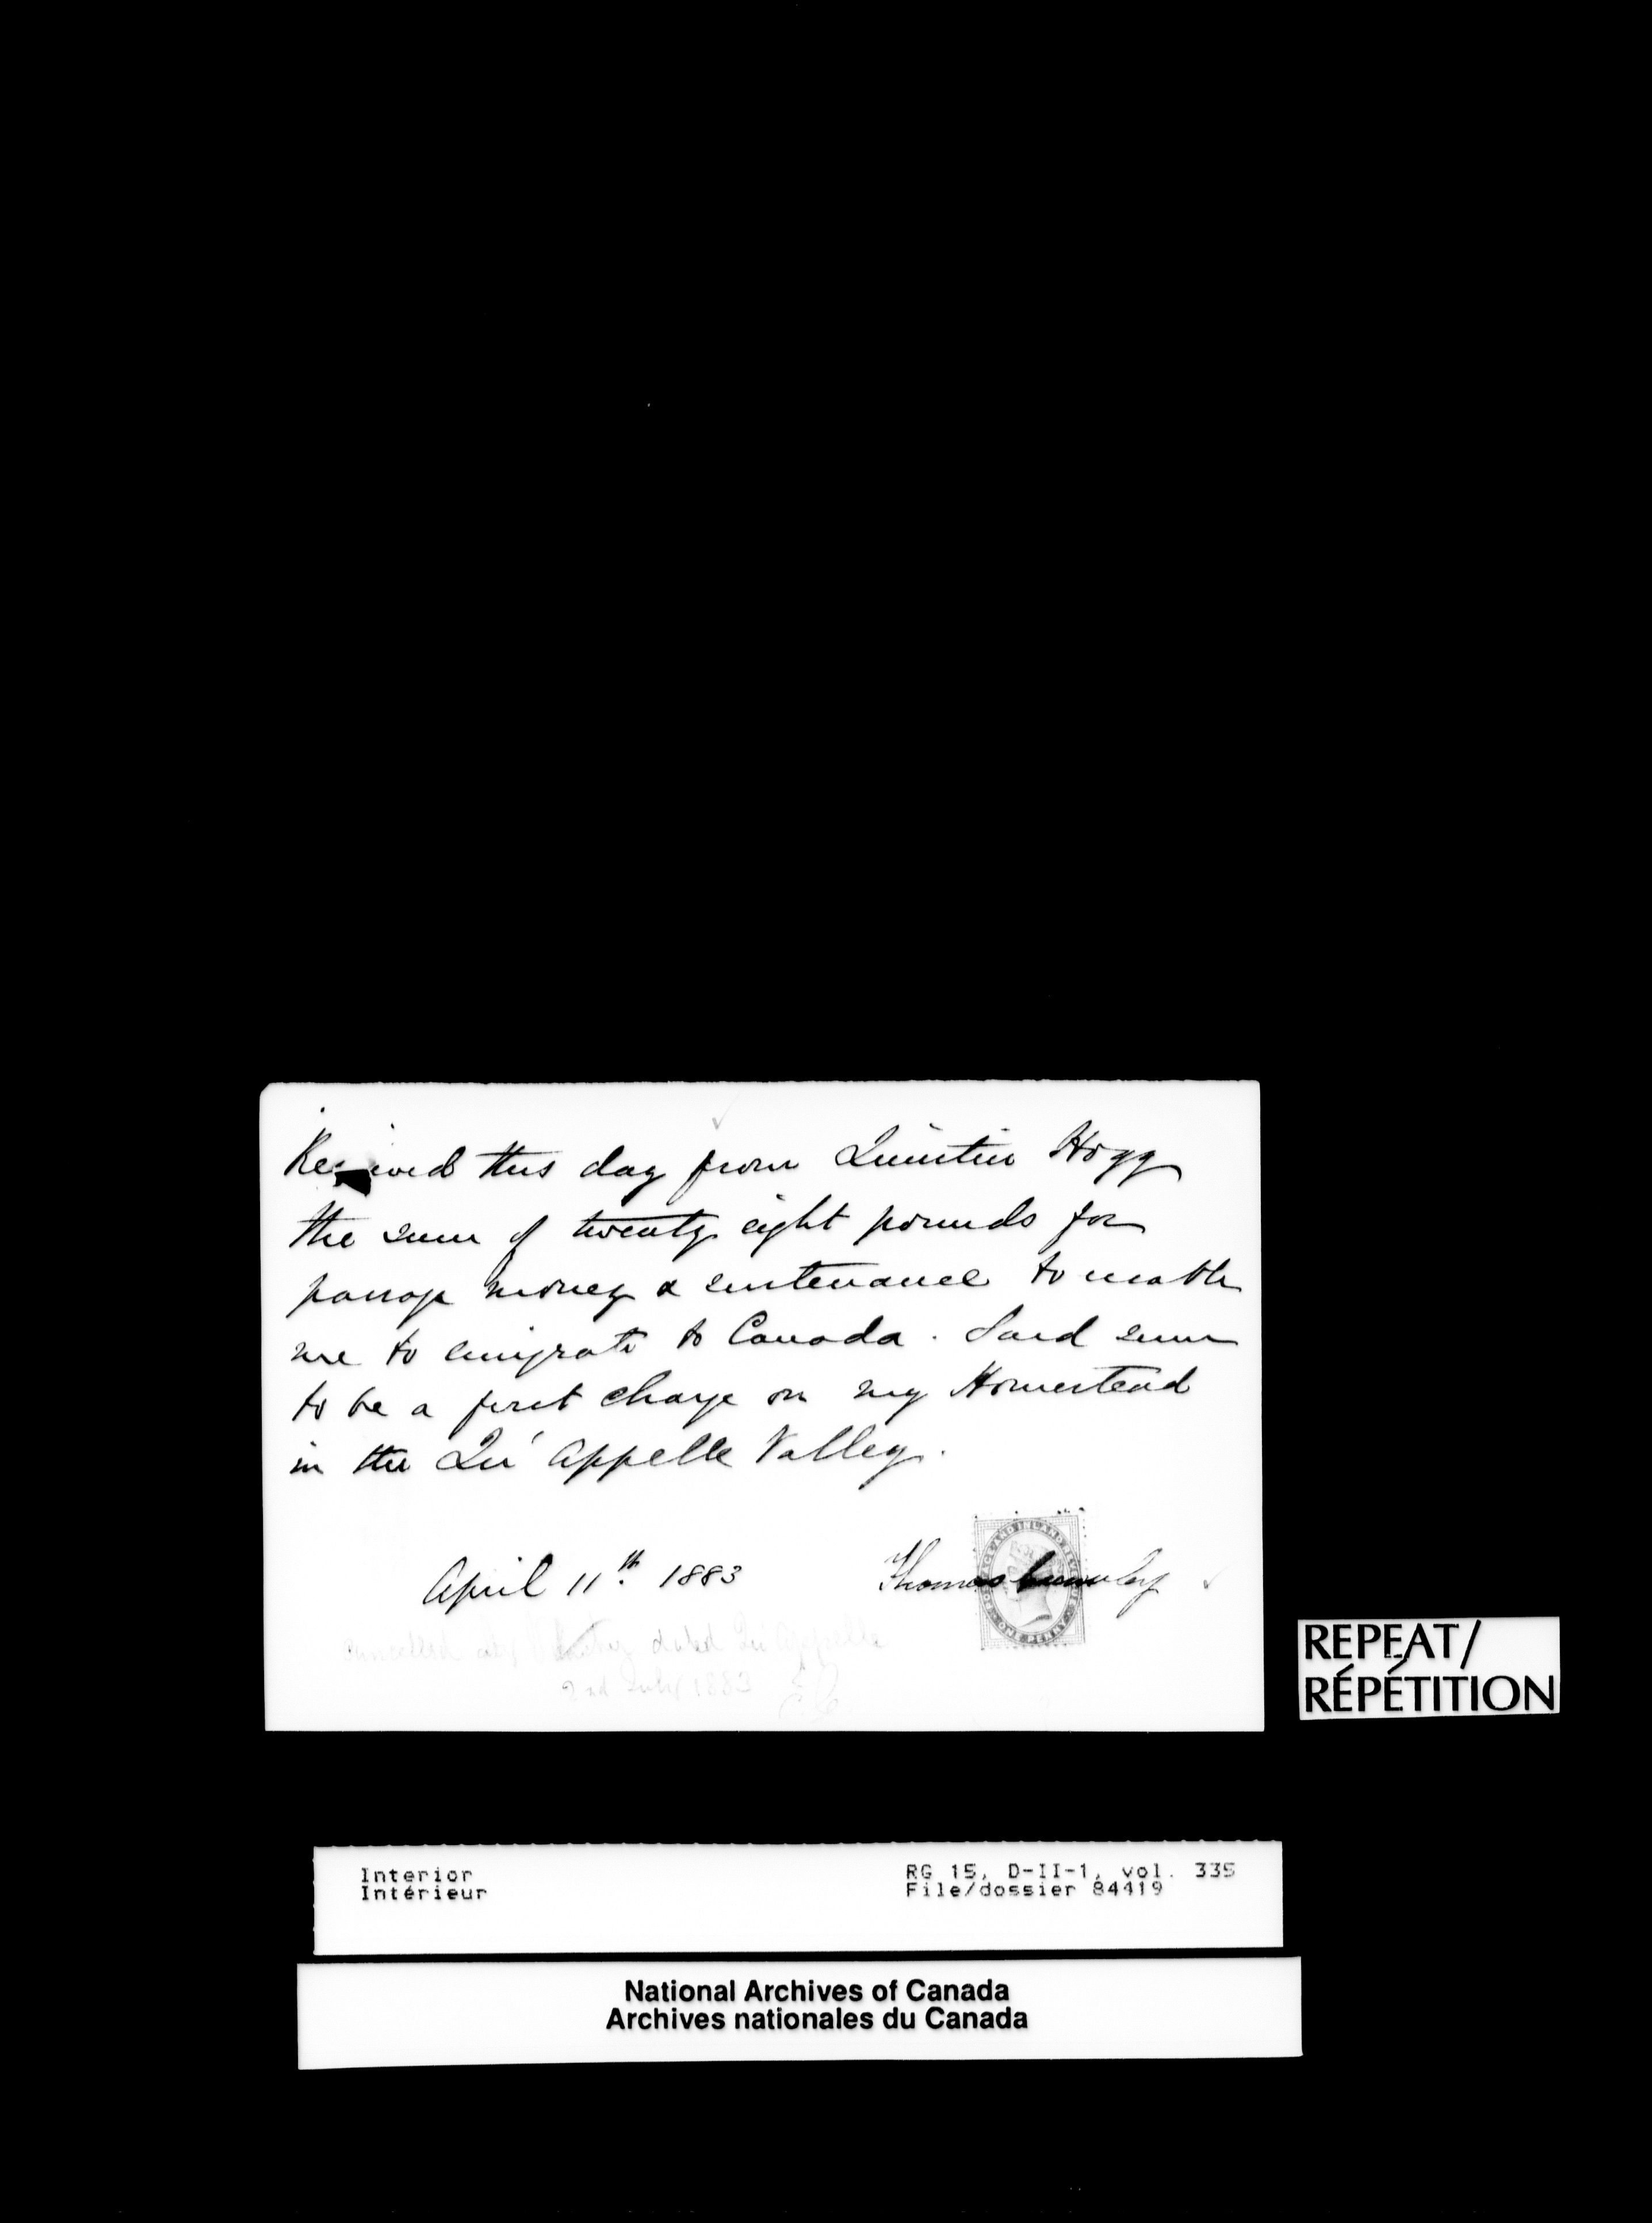 Received this day from Quintin Hogg
the sum of twenty eight pounds for
passage money & sustenance to enable
me to emigrate to Canada. Said sum
to be a first charge on my Homestead
in the Qu'Appelle Valley.
April 11th. 1883 Thomas
POSTAGE AND INLAND REVENUE
ONE PENNY
Cancelled dated Qu'Appelle
2nd July 1883
REPEAT/
RÉPÉTITION
Interior
Intérieur
RG 15, D-II-1, vol. 335
File/dossier 84419
National Archives of Canada
Archives nationales du Canada